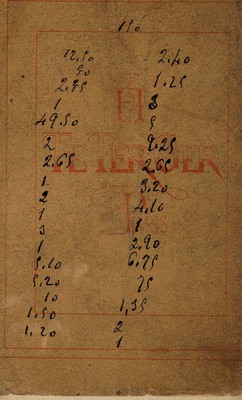 150
12.50
50
2.85
1
49.50
2
2.65
1
2
1
3
1
5.10
5.20
10
1.50
1.20
2.40
1.25
3
5
9.25
2.65
3.20
4.10
1
2.90
6.75
75
1,35
2
1